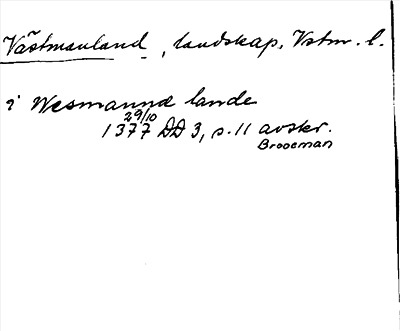 Västmanland, landskap, Vstm. l.
i Wesmanna lande
29/10
1377 DD 3, s. 11 avskr.
Brooeman